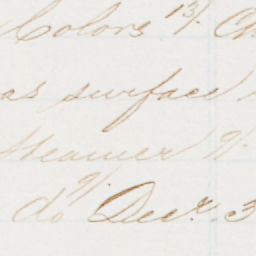 Colors 13/. Ch
as surface
Steamer 9/.
do 9/ Decr. 3